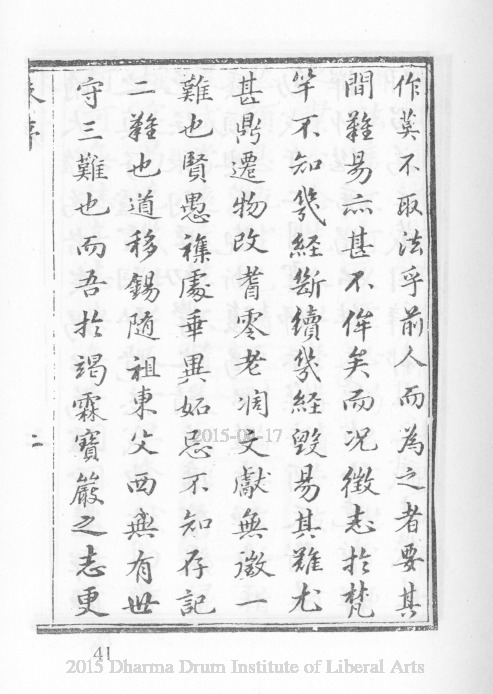 作莫不取法乎前人而為之者要其
間難易亦甚不侔矣而况徵志於梵
竿不知幾經斷續幾經毀易其難尤
甚鼎遷物改耆零老凋文獻無徵一
難也賢愚襍處垂異妬忌不知存記
二難也道移錫随祖東父西無有世
守三難也而吾於竭霖寶嚴之志更
序
二
2015-04-17
41
2015 Dharma Drum Institute of Liberal Arts